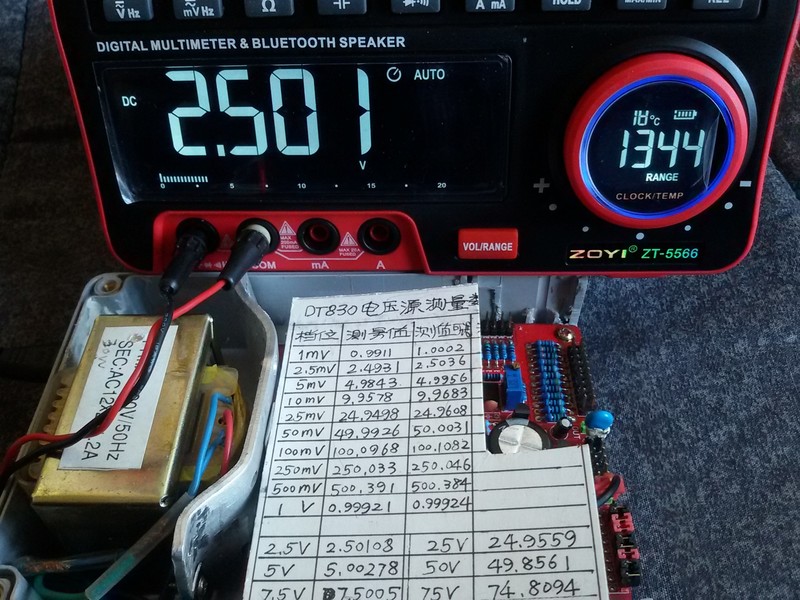 V Hz
mV Hz
Ω
A mA
HOLD
MAX/MIN
REL
DIGITAL MULTIMETER & BLUETOOTH SPEAKER
DC 2.501 AUTO
V
0 5 10 15 20
18°C
1344
RANGE
CLOCK/TEMP
+ -
MAX 20A FUSED
COM mA A
VOL/RANGE
ZOYI® ZT-5566
0V/50Hz
SEC:AC12X
2A
30W
DT830电压源测量
档位 测另值 测值
1mV 0.9911 1.0002
2.5mV 2.4931 2.5036
5mV 4.9843 4.9956
10mV 9.9578 9.9683
25mV 24.9498 24.9608
50mV 49.9926 50.0031
100mV 100.0968 100.1082
250mV 250.033 250.046
500mV 500.391 500.384
1 V 0.99921 0.99924
2.5V 2.50108 25V 24.9559
5V 5.00278 50V 49.8561
7.5V 7.5005 75V 74.8094